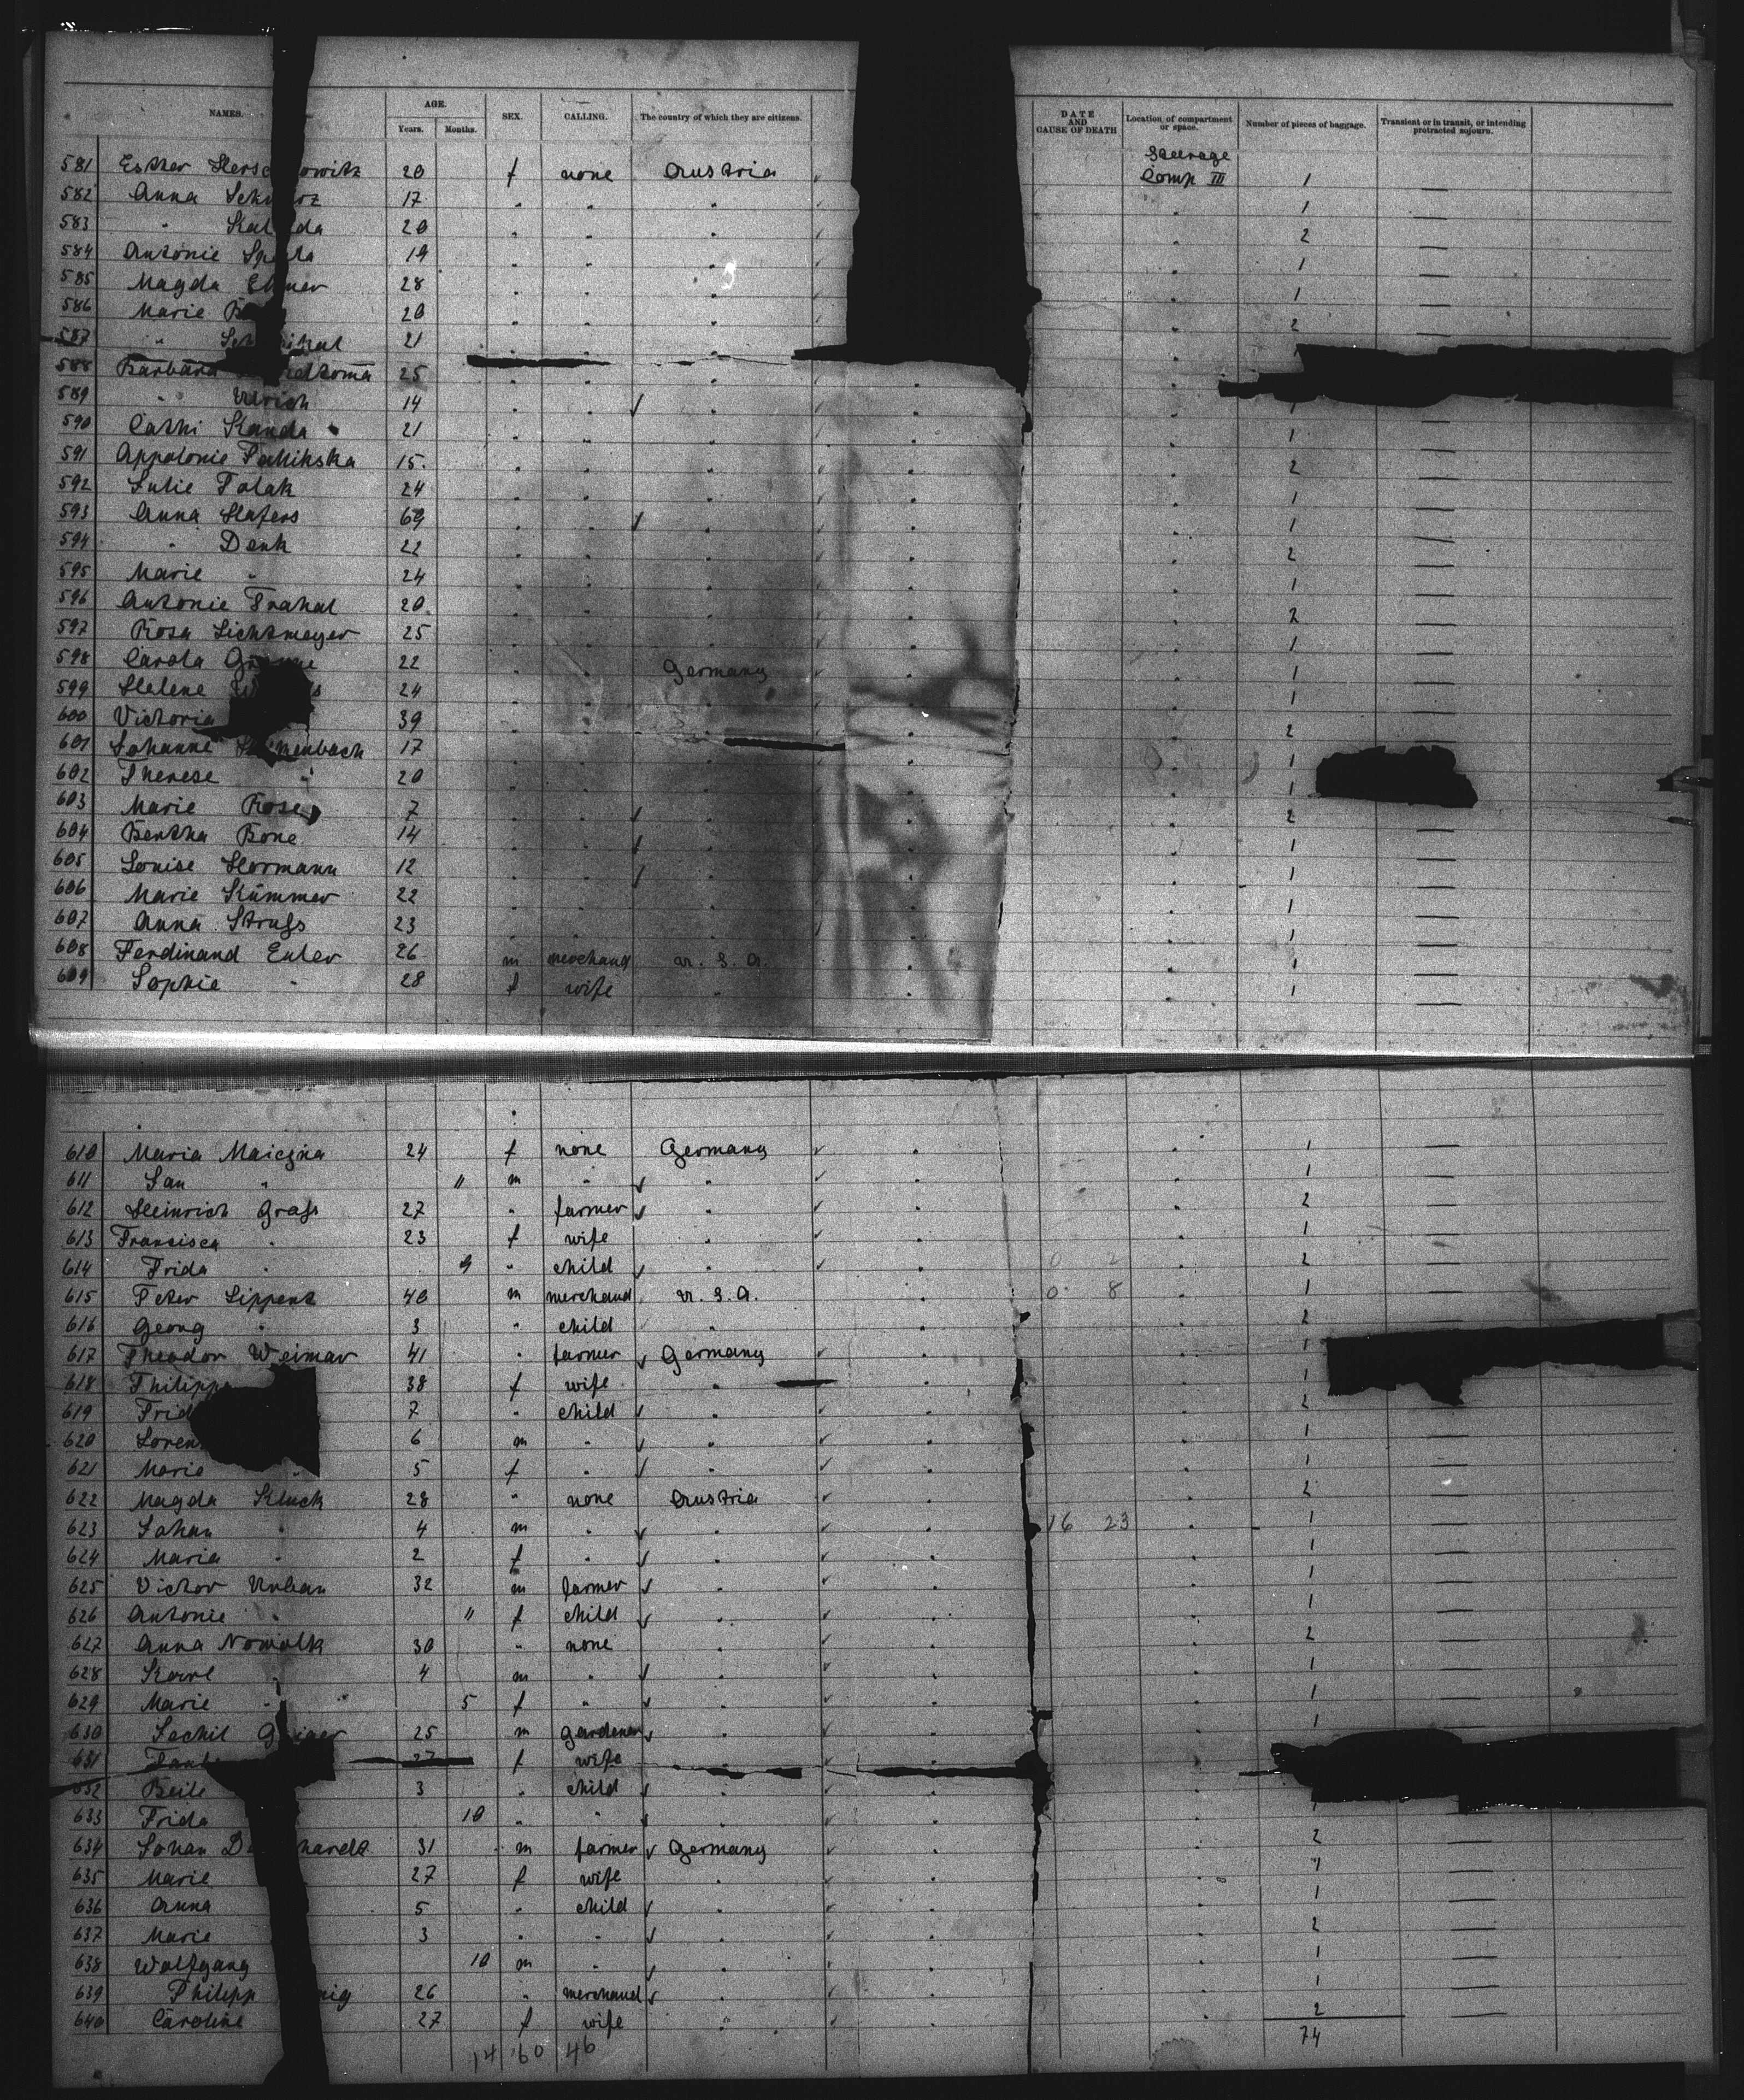 NAMES. AGE. Years. Months. SEX. CALLING. The country of which they are citizens. DATE AND CAUSE OF DEATH Location of compartment or space. Number of pieces of baggage. Transient or in transit, or intending protracted sojourn.
Steerage
581 Esther 20 f none Austria Comp III 1 —
582 Anna 17 " " " " 1 —
583 " 20 " " " " 2 —
584 Antonie 19 " " " " 1 —
585 Magda 28 " " " " 1 —
586 Marie 20 " " " " 2 —
587 " 21 " " " "
588 Barbara 25 " " " "
589 " Ulrich 14 " " " " 1 —
590 Cathi Kanda 21 " " " " 1 —
591 Appolonie 15 " " " " 2 —
592 Julie Polak 24 " " " " 1 —
593 Anna Hafers 69 " " " " 1 —
594 " Denk 22 " " " " 2 —
595 Marie " 24 " " " " 1 —
596 Antonie Prahal 20 " " " " 2 —
597 Rosa Lichtmeyer 25 " " " " 1 —
598 Carola 22 " " Germany " 1 —
599 Helene 24 " " " " 1 —
600 Victoria 39 " " " " 2 —
601 Johanne 17 " " " " 1
602 Therese " 20 " " " " 1
603 Marie Rose 7 " " " " 2 —
604 Bertha Bone 14 " " " " 1 —
605 Louise Hormann 12 " " " " 1 —
606 Marie Kümmer 22 " " " " 1 —
607 Anna Struss 23 " " " " 1 —
608 Ferdinand Euler 26 m merchand U. S. A. " 1 —
609 Sophie " 28 f wife " " 1 —
610 Maria Maiczna 24 f none Germany " 1 —
611 Jan " 11 m " " " 1 —
612 Heinrich Grass 27 " farmer " " 2 —
613 Francisca " 23 f wife " " 1 —
614 Frida " 9 " child " 0 2 " 2 —
615 Peter Lippert 40 m merchand U. S. A. 0 8 " 1 —
616 Georg " 3 " child " " 2 —
617 Theodor Weimar 41 " farmer Germany " 1
618 38 f wife " " 1
619 7 " child " " 2 —
620 6 m " " " 1 —
621 Marie " 5 f " " " 1 —
622 Magda Kluck 28 " none Austria " 2 —
623 Johan " 4 m " " 16 23 " 1 —
624 Maria " 2 f " " " 1 —
625 Victor Urban 32 m farmer " " 1 —
626 Antonie " 11 f child " " 1 —
627 Anna Nowalk 30 " none " " 2 —
628 Karl " 4 m " " " 1 —
629 Marie " 5 f " " " 1 —
630 25 m gardener " " 1 —
631 27 f wife " "
632 Beile 3 " child " "
633 Frida 10 " " " " 1 —
634 Johan 31 m farmer Germany " 2 —
635 Marie 27 f wife " " 1 —
636 Anna 5 " child " " 1 —
637 Marie 3 " " " " 2 —
638 Wolfgang 10 m " " " 1 —
639 Philipp 26 " merchand " " 1 —
640 Caroline 27 f wife " " 2 —
14 60 46 74